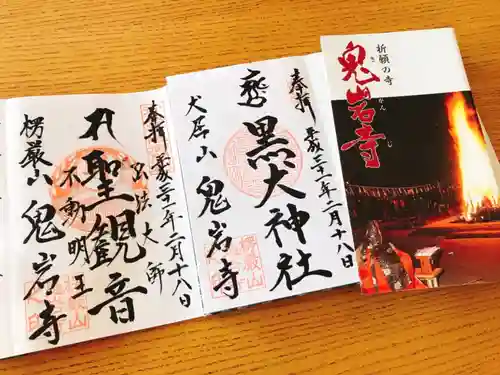 奉拝
平成三十一年二月十八日
弘法大師
聖観音
不動明王
楞厳山
鬼岩寺
奉拝
平成三十一年二月十八日
黒犬神社
犬居山
鬼岩寺
祈願の寺
鬼岩寺
き
がん
じ